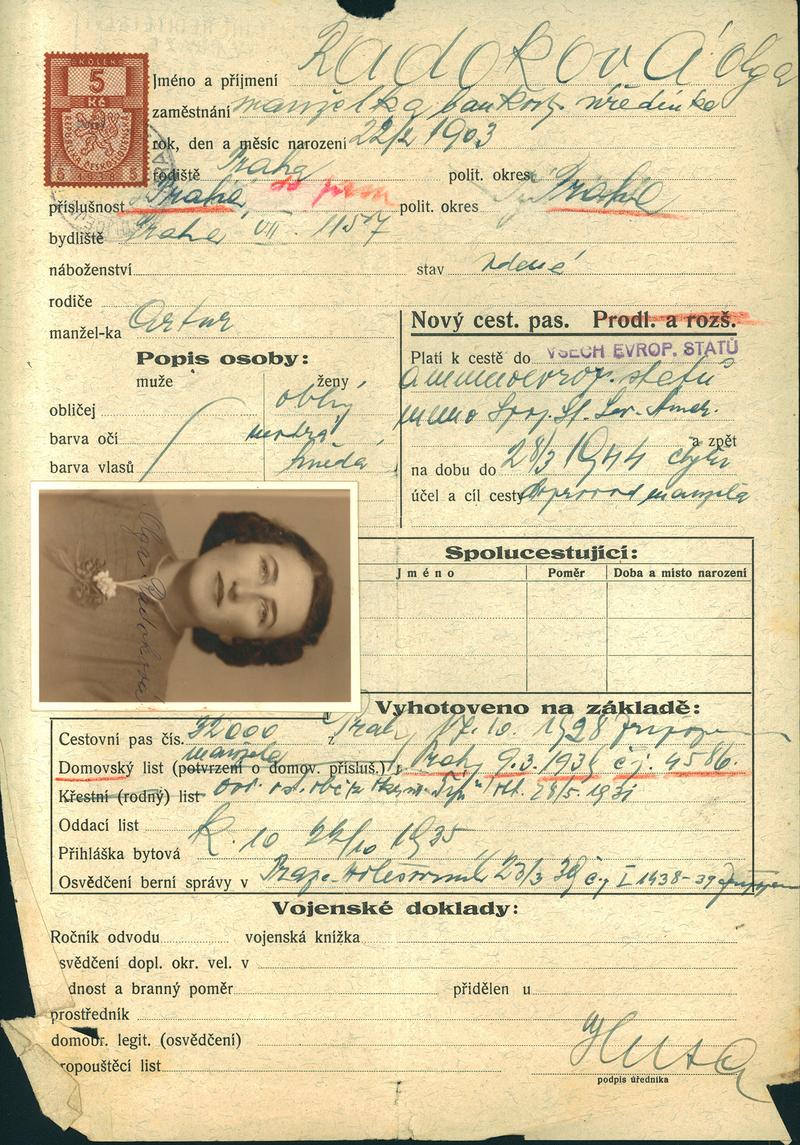 KOLEK
5
Kč
5 1938 5
Jméno a příjmení Radoková Olga
zaměstnání manželka bankov. úředníka
rok, den a měsíc narození 22/2 1903
rodiště Praha polit. okres
příslušnost Praha polit. okres Praha
bydliště Praha VII. 1157
náboženství stav vdaná
rodiče
manžel-ka Artur
Nový cest. pas. Prodl. a rozš.
Platí k cestě do VŠECH EVROP. STATŮ
a mimoevrop. států
mimo Spoj. St. Sev. Amer.
a zpět
na dobu do 28/3 1944
účel a cíl cesty Doprovod manžela
Popis osoby:
muže ženy
obličej oblý
barva očí modrá
barva vlasů hnědá
Olga Radoková
Spolucestující:
Jméno Poměr Doba a místo narození
Vyhotoveno na základě:
Cestovní pas čís. 32000 z Prahy 17. 10. 1928
manžela
Domovský list (potvrzení o domov. přísluš.) Prahy 9.3. 1934 č.j. 4586.
Křestní (rodný) list 28/5. 1931
Oddací list
Přihláška bytová K. 10 22/10 1935
Osvědčení berní správy v Praze-Holešovicích 23/3 39 č.j. I 1438-39
Vojenské doklady:
Ročník odvodu vojenská knížka
svědčení dopl. okr. vel. v
dnost a branný poměr přidělen u
prostředník
domobr. legit. (osvědčení)
ropouštěcí list
podpis úředníka